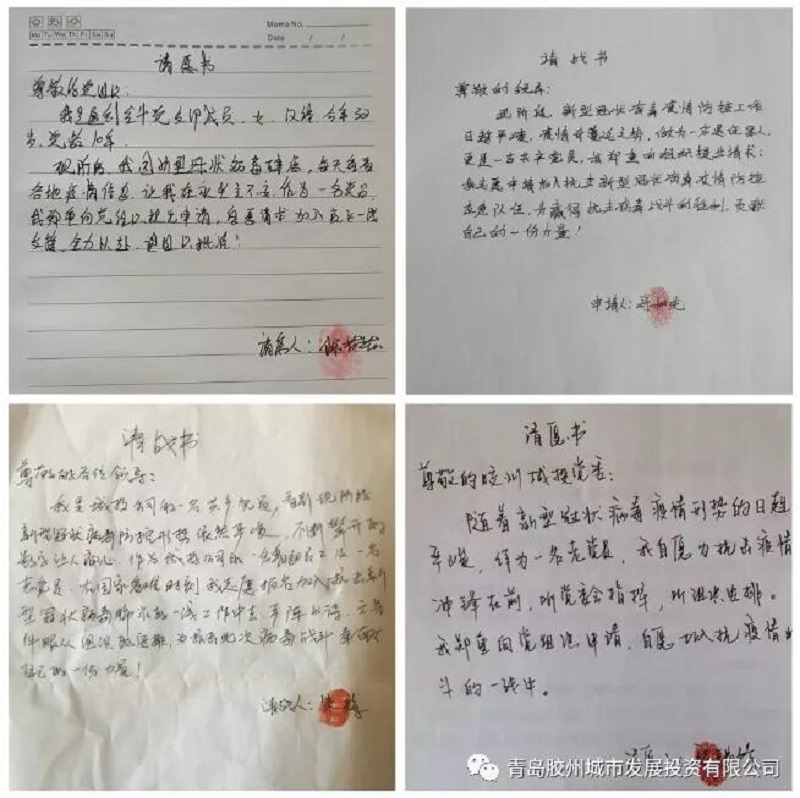 Memo No.
Date / /
Mo Tu We Th Fr Sa Su
请愿书
尊敬的党组织:
现阶段,我国新型冠状病毒肆虐,每天看着
各地疫情信息,让我在家坐立不安,作为一名党员,
我郑重向党组织提出申请,自愿请求加入
全力以赴,望组织批准!
请愿人:
请战书
尊敬的领导:
现阶段,新型冠状病毒疫情防控工作
日趋严峻,疫情有蔓延之势,做为一名退伍军人,
更是一名共产党员,我郑重向组织提出请求:
我志愿申请加入抗击新型冠状病毒疫情防控
志愿队伍,为赢得抗击病毒战斗的胜利,贡献
自己的一份力量!
申请人:
请战书
尊敬的各位领导:
我是城投公司的一名共产党员,
新型冠状病毒防控形势依然严峻,不断攀升的
数字让人痛心,作为城投公司的一名
老党员,在国家危难时刻我志愿报名加入抗击新
型冠状病毒肺炎的一线工作中去,
件服从组织的安排,为抗击此次病毒战斗奉献
自己的一份力量!
请战人:
请愿书
尊敬的胶州城投党委:
随着新型冠状病毒疫情形势的日趋
严峻,作为一名老党员,我自愿为抗击疫情
冲锋在前,听党委会指挥,听组织安排。
我郑重向党组织申请,自愿加入抗疫情战
斗的一线中。
请愿人
青岛胶州城市发展投资有限公司